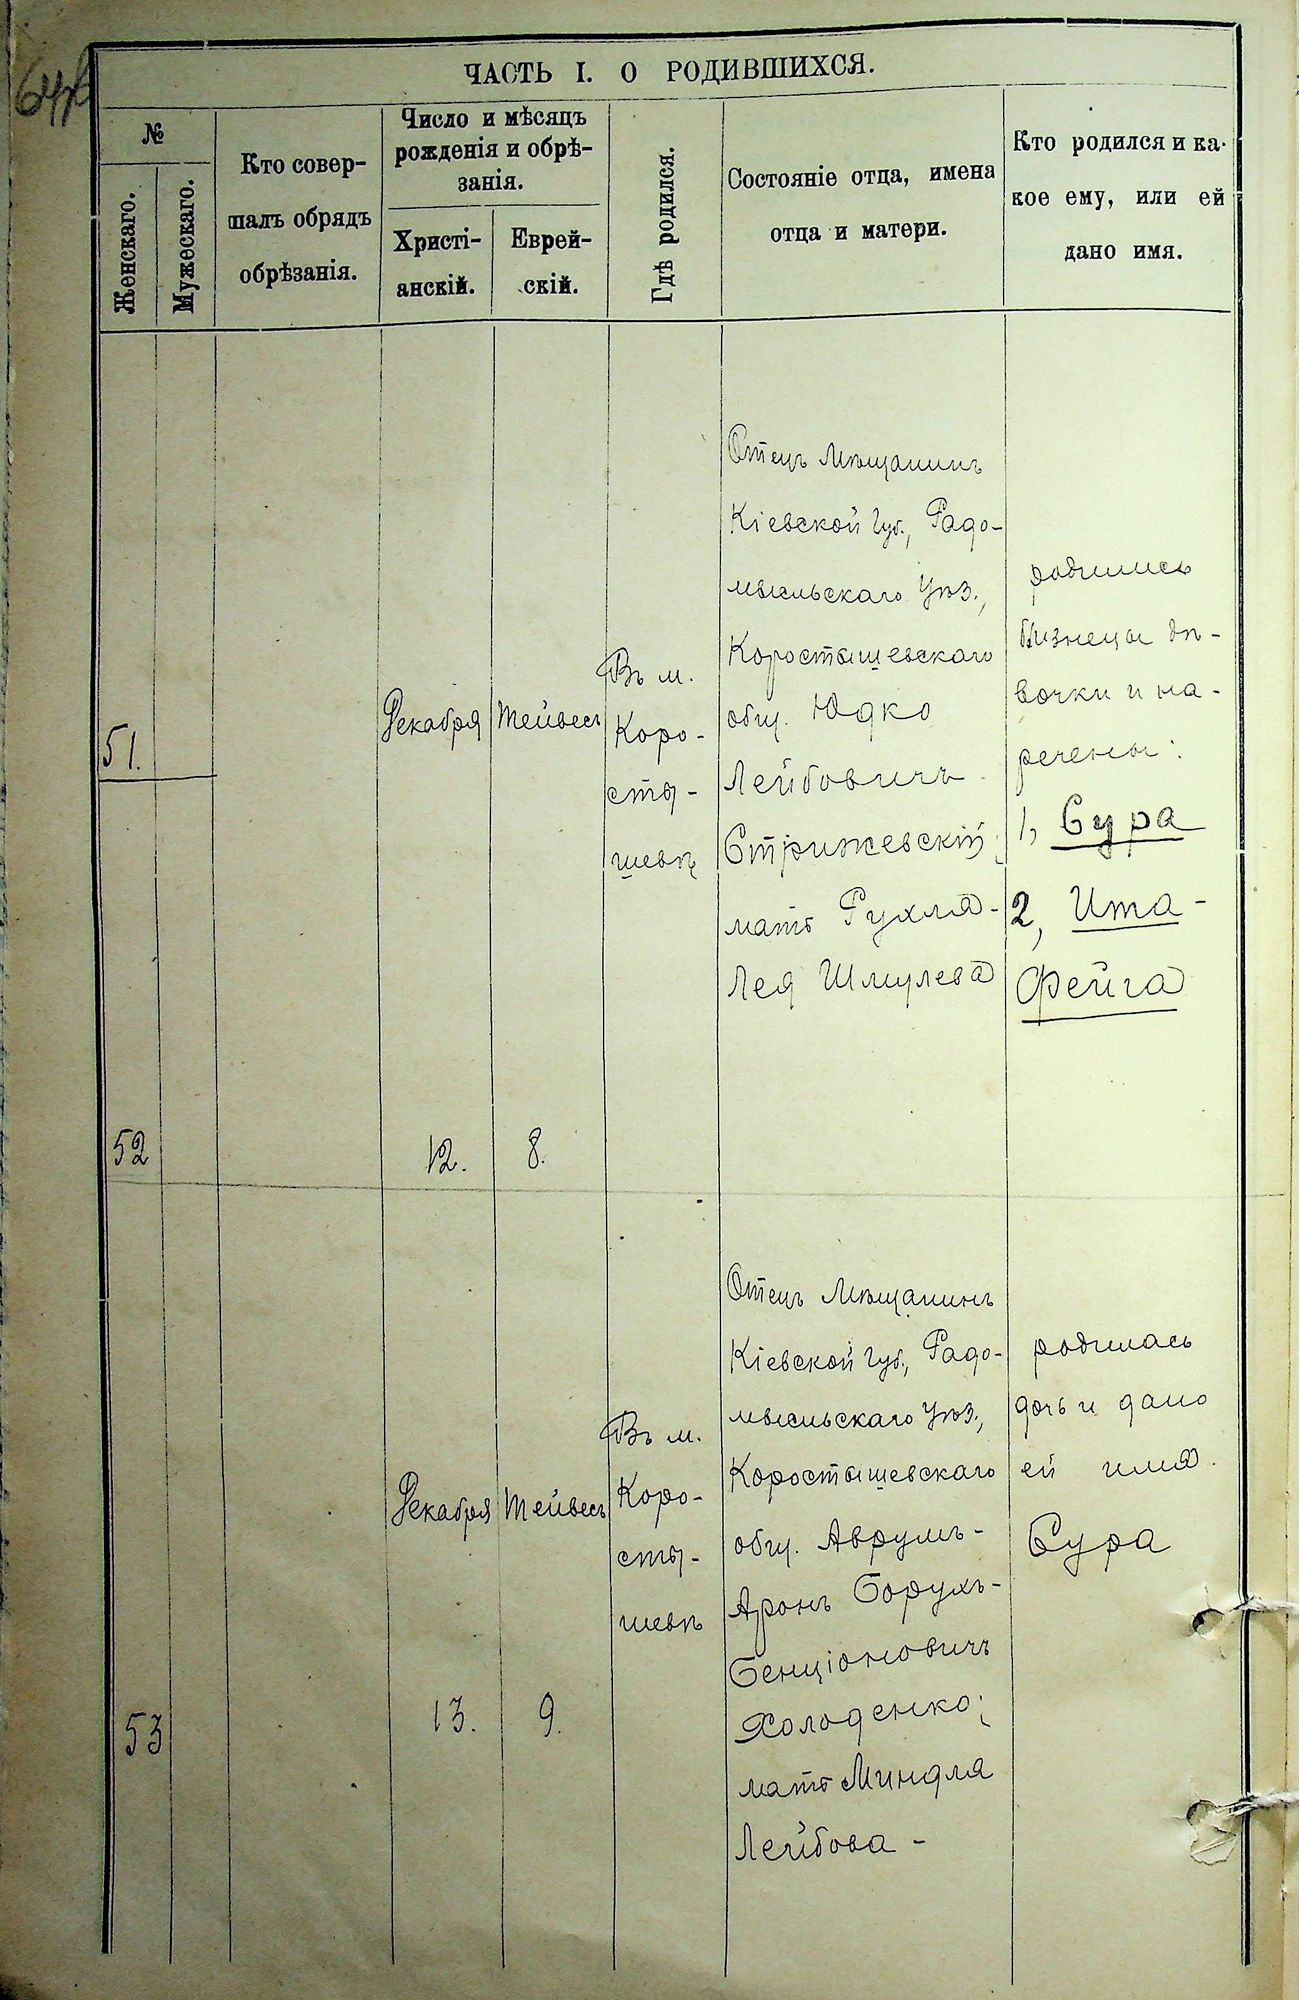 ЧАСТЬ I. О РОДИВШИХСЯ.
№
Женскаго.
Мужескаго.
Кто совер-
шалъ обрядъ
обрѣзанія.
Число и мѣсяцъ
рожденія и обрѣ-
занія.
Христі-
анскій.
Еврей-
скій.
Гдѣ родился.
Состояніе отца, имена
отца и матери.
Кто родился и ка-
кое ему, или ей
дано имя.
51.
52
Декабря
12.
Тейвесъ
8.
Въ м.
Коро-
сты-
шевѣ
Отецъ Мѣщанинъ
Кіевской Губ., Радо-
мысльскаго Уѣз.,
Коростышевскаго
общ. Юдко
Лейбовичъ
Стрижевскій;
мать Рухля-
Лея Шмулева
родились
близнецы дѣ-
вочки и на-
речены:
1, Сура
2, Ита-
Фейга
53
Декабря
13.
Тейвесъ
9.
Въ м.
Коро-
сты-
шевѣ
Отецъ Мѣщанинъ
Кіевской Губ., Радо-
мысльскаго Уѣз.,
Коростышевскаго
общ. Аврумъ-
Аронъ Борухъ-
Бенціоновичъ
Холоденко;
мать Миндля
Лейбова -
родилась
дочь и дано
ей имя
Сура